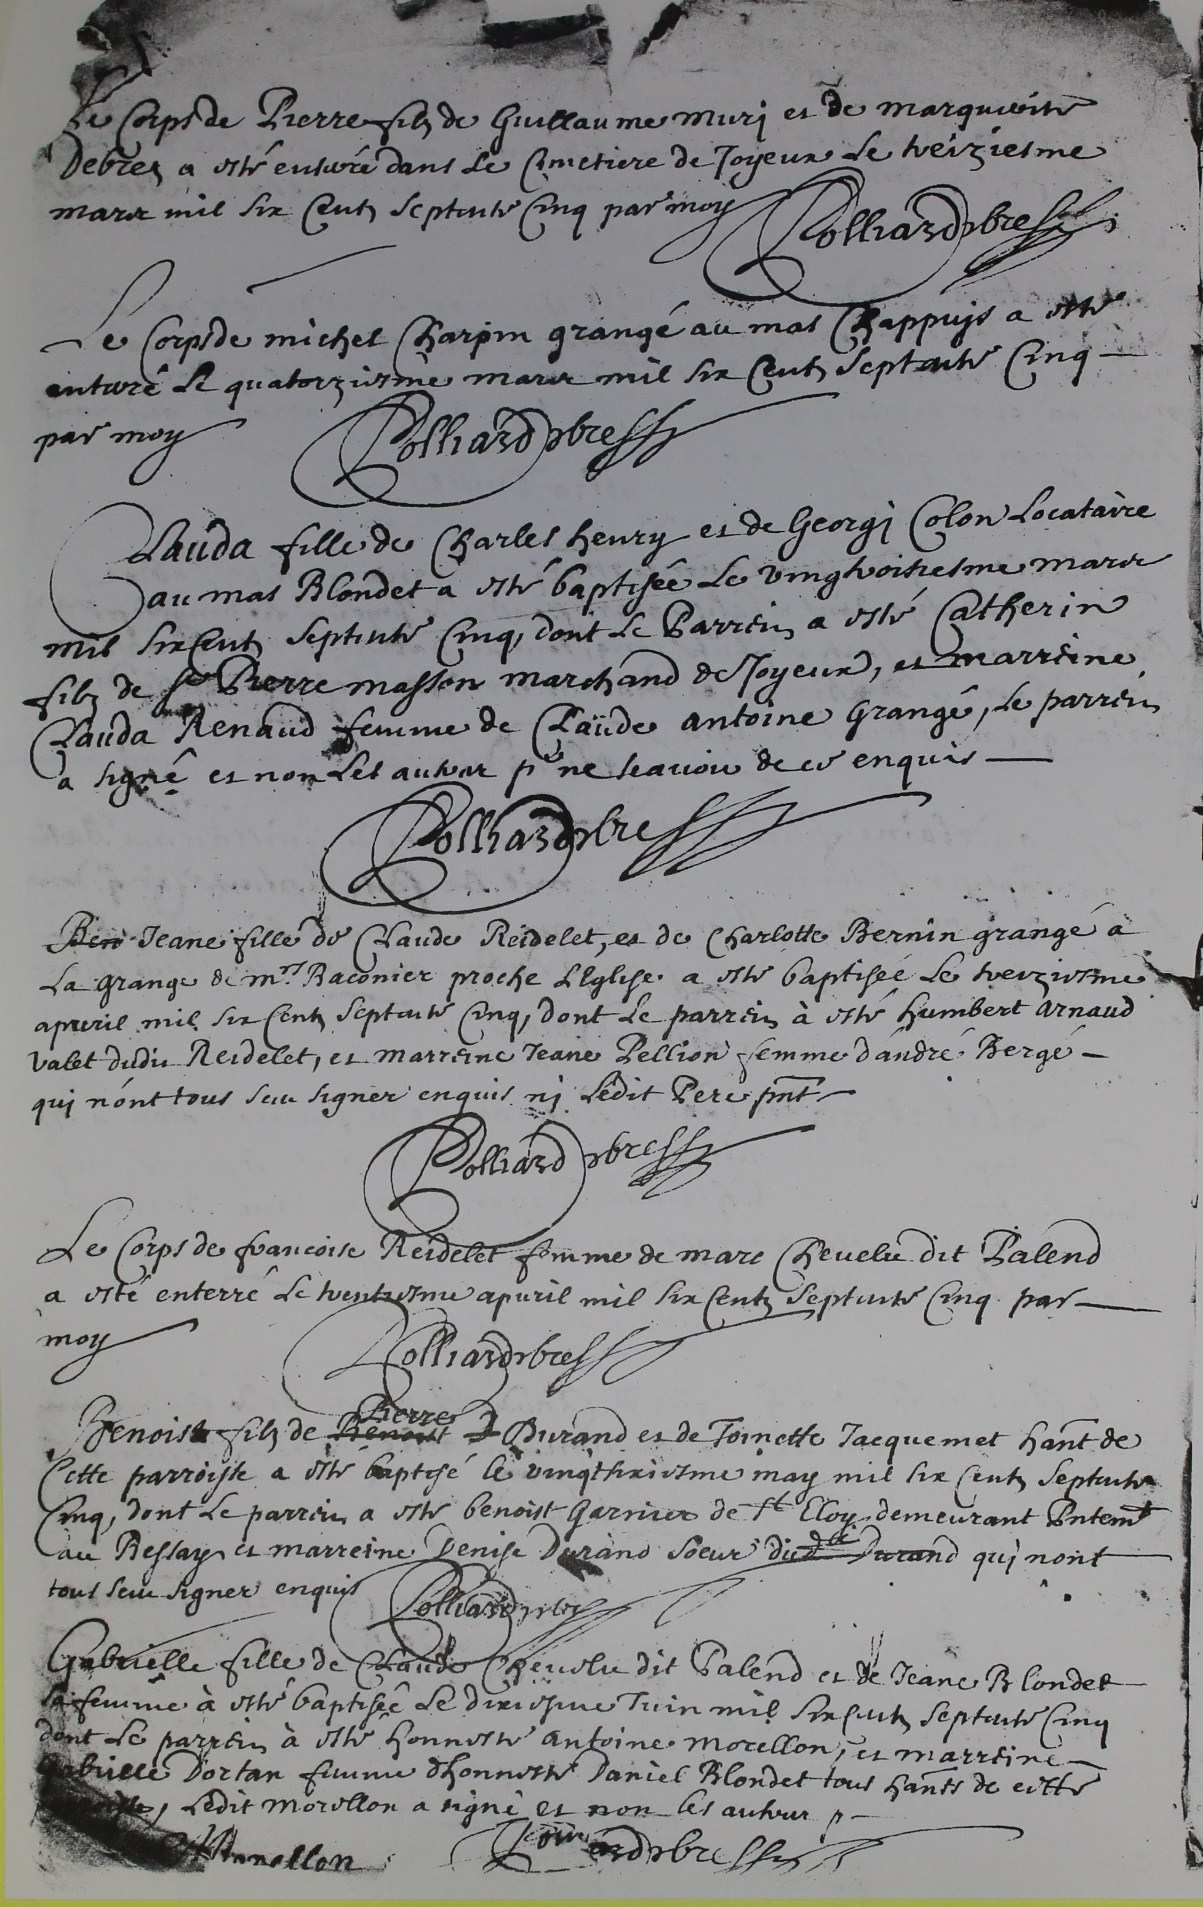 Le Corps de Pierre filz de Guillaume muri et de marguerite
Debrez a esté enterré dans le Cimetiere de Joyeux le treiziesme
mars mil six Centz septante Cinq par moy
Polliard pbre
Le Corps de michel Charpin grangé au mas Chappuis a esté
enterré le quatorziesme mars mil six Centz septante Cinq
par moy Polliard pbre
Clauda fille de Charles henry et de Georgi Colon Locataire
au mas Blondet a esté baptisée le vingtroisiesme mars
mil six Centz septante Cinq, dont le Parrein a esté Catherin
filz de sr Pierre masson marchand de Joyeux, et marreine
Clauda Renaud femme de Claude antoine Grangé, le parrein
a signé et non les autres pr ne scavoir de ce enquis
Polliard pbre
Ben Jeane fille de Claude Reidelet, et de Charlotte Bernin grangé a
La grange de mrs Baconier proche L'Eglise a esté baptisée le treiziesme
apvril mil six Centz septante Cinq, dont le parrein à esté humbert Arnaud
valet dudit Reidelet, et marreine Jeane Pellion femme d'andré Bergé
qui n'ont tous sceu signer enquis ni Ledit Pere pnt
Polliard pbre
Le Corps de francoise Reidelet femme de marc Chevelu dit Palend
a esté enterré le trentiesme apvril mil six Centz septante Cinq par
moy Polliard pbre
Pierre
Benoist filz de Benoist D Durand et de Toinette Jacquemet hant de
Cette parroisse a esté baptisé le may mil six Centz septante
Cinq, dont le parrein a esté benoist Garnier de St Eloy demeurant Pntemt
au Ressay et marreine Denise Durand soeur dud Durand qui n'ont
tous sceu signer enquis Polliard pbre
Gabrielle fille de Claude Chevelu dit Palend et de Jeane Blondet
sa femme à esté baptisée le dixiesme Juin mil six Centz septante Cinq
dont le parrein à esté honneste antoine morellon, et marreine
Gabrielle Dortan femme d'honneste Daniel Blondet tous hants de cette
Ledit morellon a signé et non les autres p
Morellon Polliard pbre